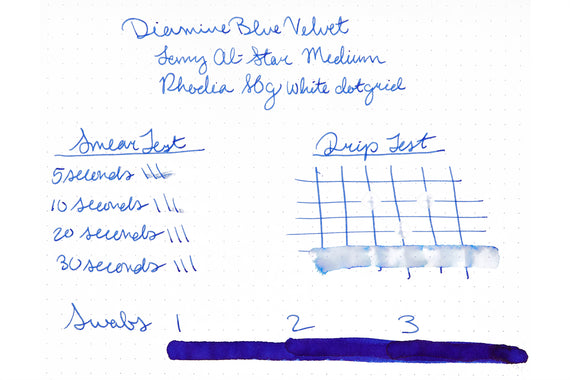 Diamine Blue Velvet
Lamy Al-Star Medium
Rhodia 80g White dotgrid
Smear Test
Drip Test
5 seconds
10 seconds
20 seconds
30 seconds
Swabs 1 2 3